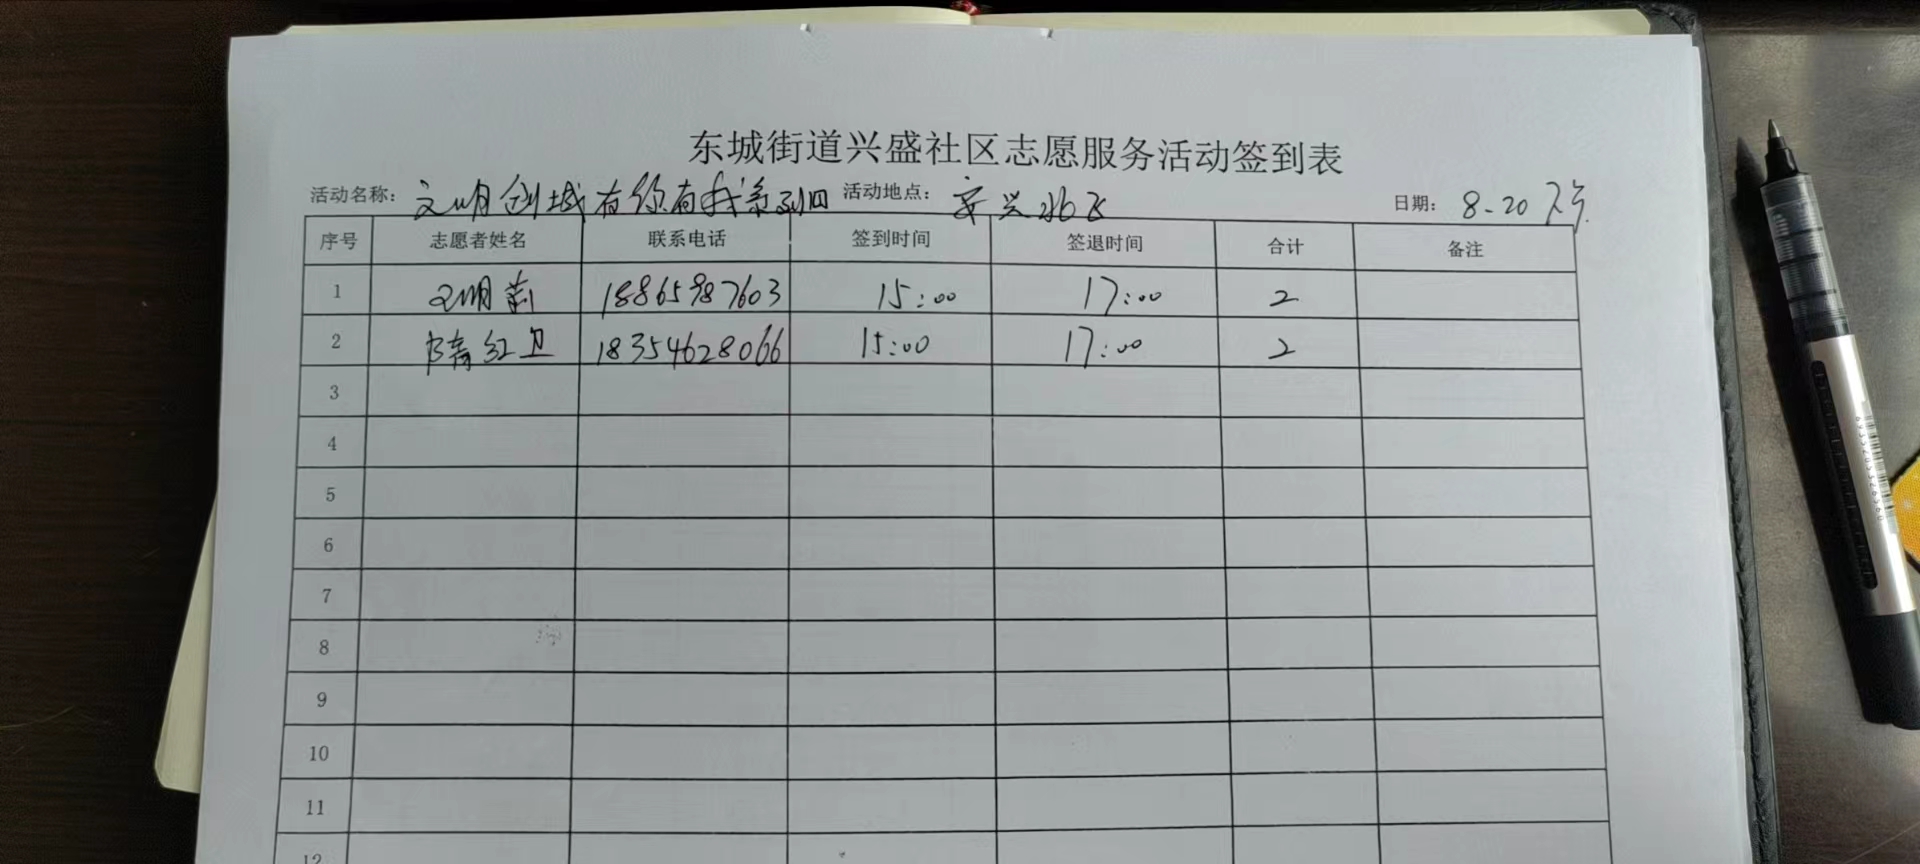 东城街道兴盛社区志愿服务活动签到表
活动名称: 文明创城有你有我系列四 活动地点: 安兴北区 日期: 8-20 下午
序号 志愿者姓名 联系电话 签到时间 签退时间 合计 备注
1 明莉 18865987603 15:00 17:00 2
2 隋红卫 18354628066 15:00 17:00 2
3
4
5
6
7
8
9
10
11
12
6935205326560